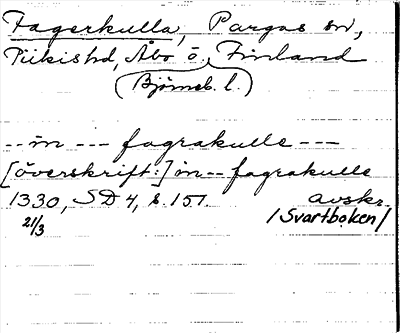 Fagerkulla, Pargas sn,
Piikis hd, Åbo o, Finland
(Björneb. l.)
-- in --- fagrakulle ---
[överskrift:] in -- fagrakulle
1330, SD 4, s. 157. avskr.
21/3 /Svartboken/